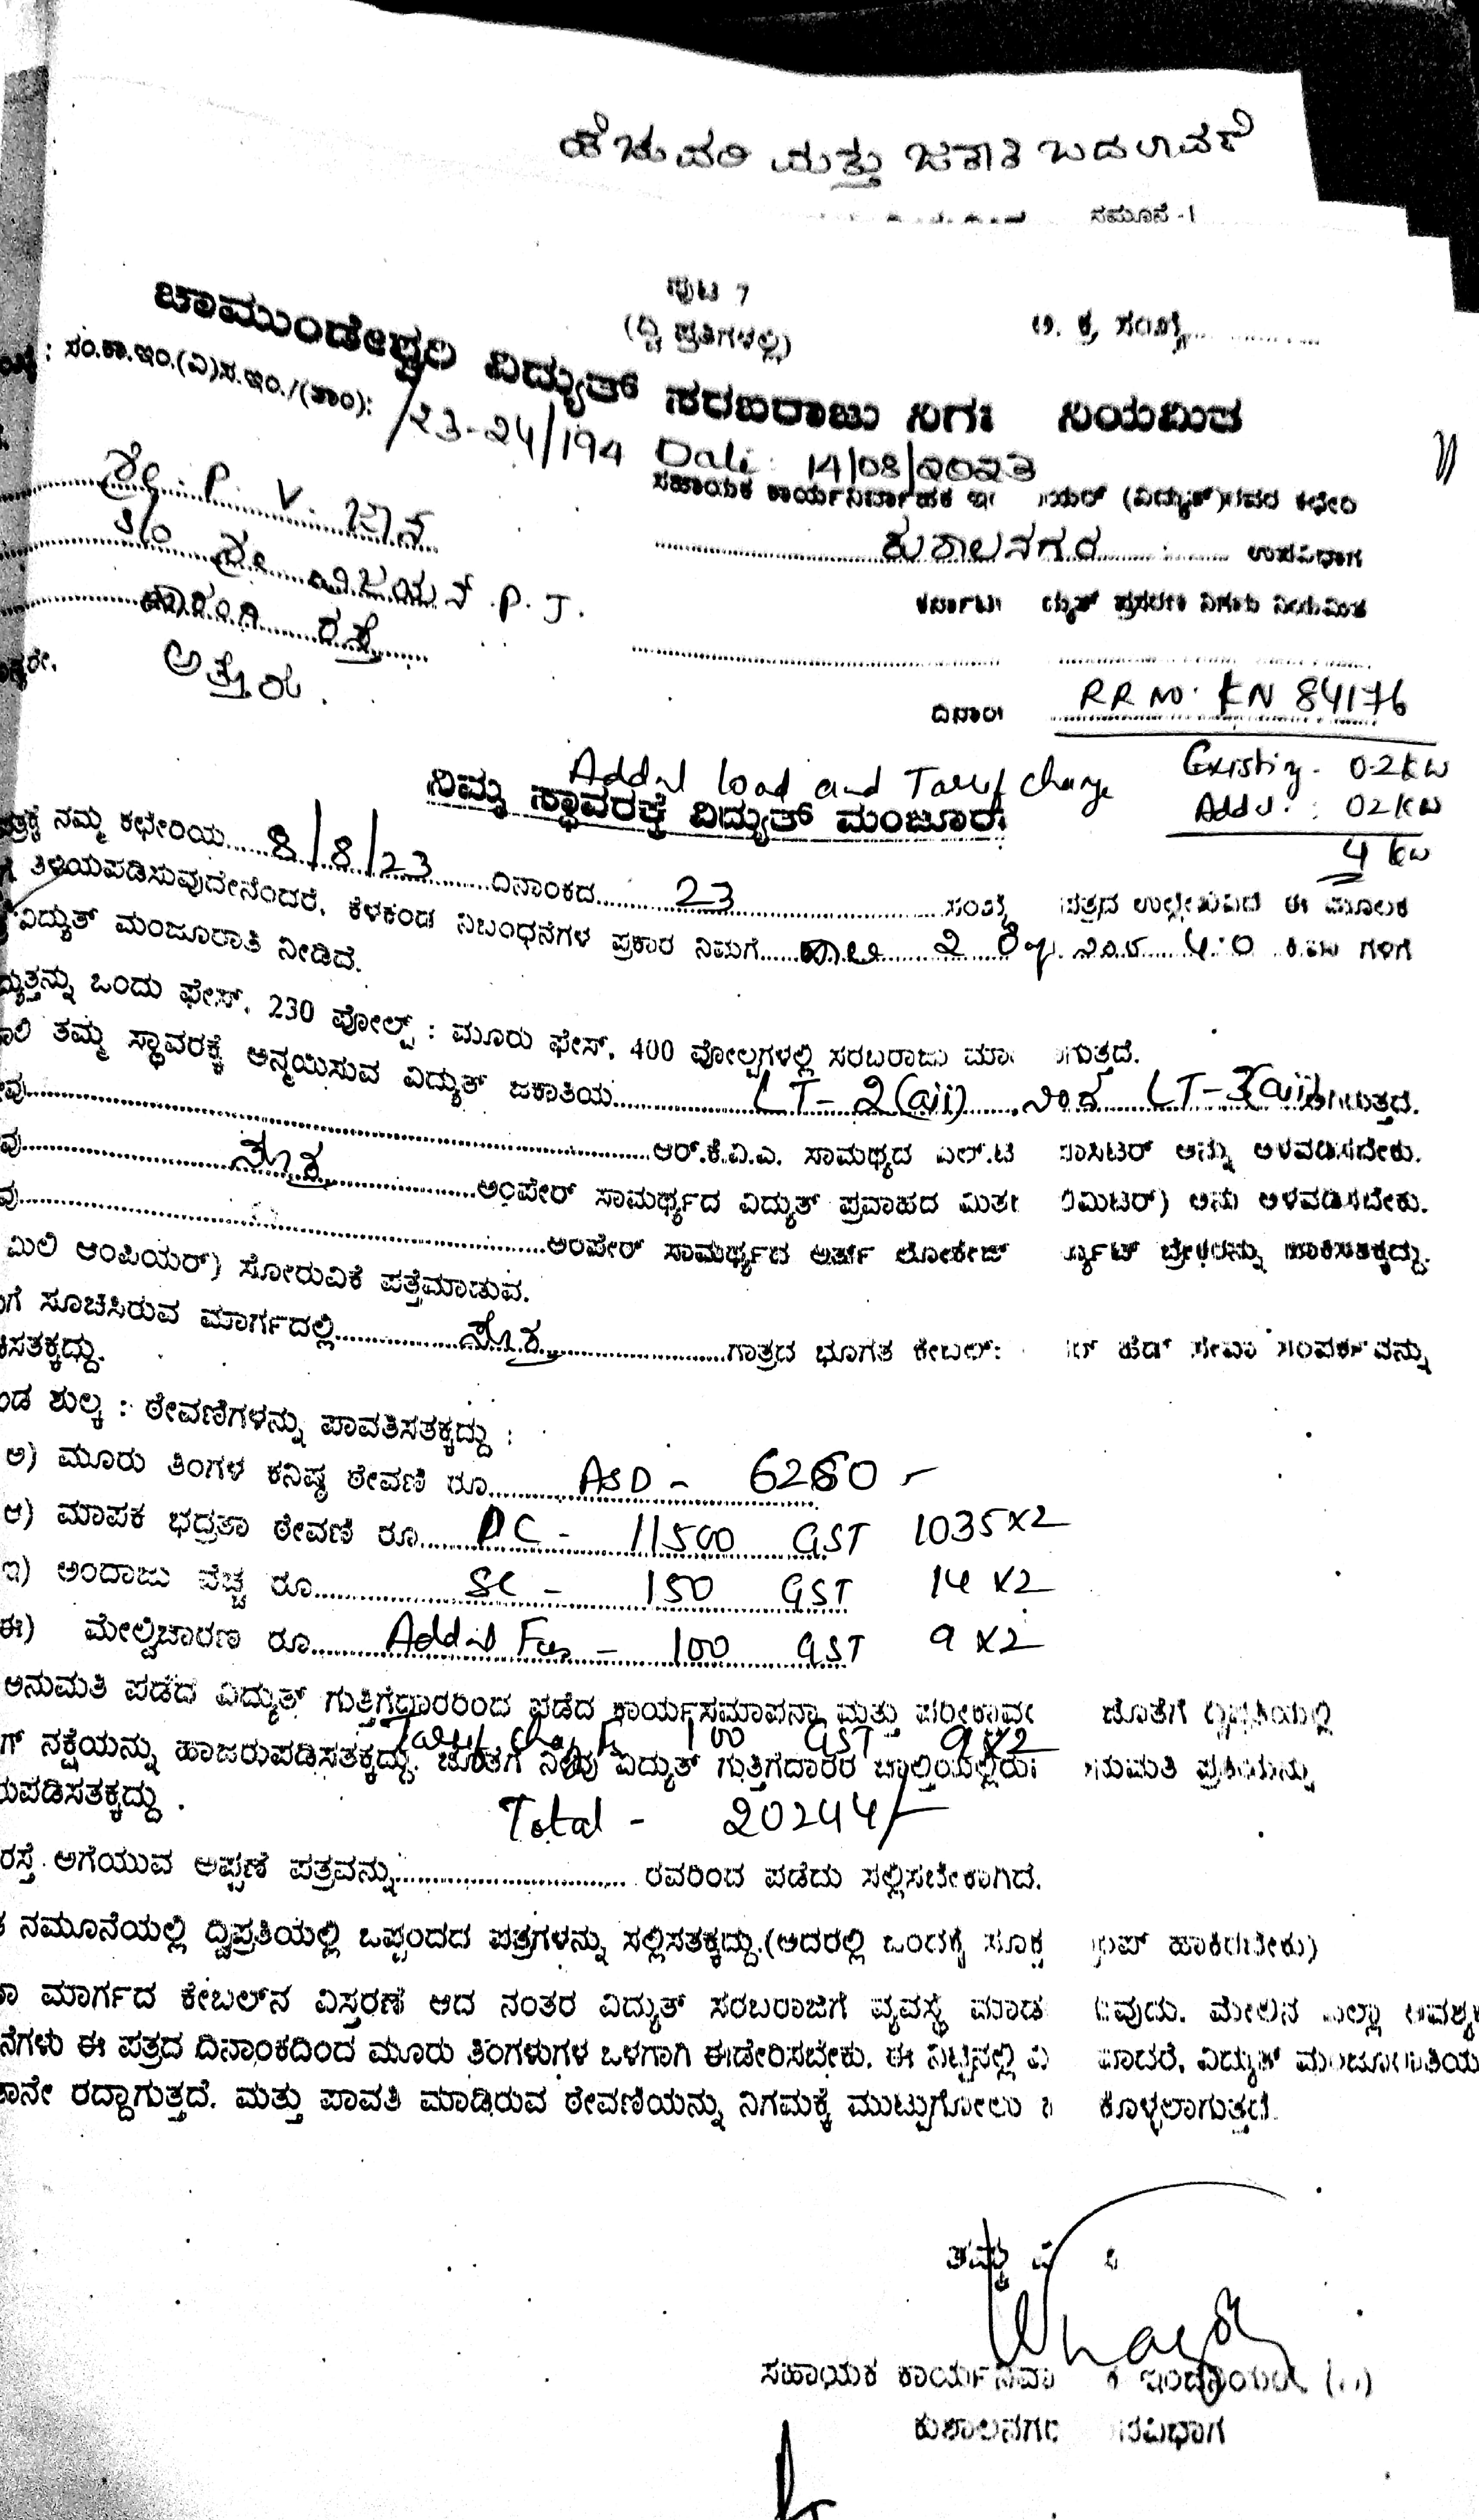 ಹೆಚುವರಿ ಮತ್ತು ಜಕಾತಿ ಬದಲಾವಣೆ
ನಮೂನೆ -1
ಪುಟ 7
(ದ್ವಿ ಪ್ರತಿಗಳಲ್ಲಿ)
ಅ. ಕ್ರ. ಸಂಖ್ಯೆ
ಚಾಮುಂಡೇಶ್ವರಿ ವಿದ್ಯುತ್ ಸರಬರಾಜು ನಿಗಮ ನಿಯಮಿತ
: ಸಂ.ಕಾ.ಇಂ.(ವಿ)ಸ.ಇಂ./(ಶಾಂ): /23-24/194 Date: 14/08/2023
ಸಹಾಯಕ ಕಾರ್ಯನಿರ್ವಾಹಕ ಇಂ ಯರ್ (ವಿದ್ಯುತ್)ರವರ ಕಛೇರಿ
ಶ್ರೀ. P. V. ಜಾನ್
ಕುಶಾಲನಗರ ಉಪವಿಭಾಗ
S/o ಶ್ರೀ ವಿಜಯನ್ .P. J.
ಪ್ರಸರಣ ನಿಗಮ ನಿಯಮಿತ
ರಸ್ತೆ
ಅತ್ತೂರು.
ದಿನಾಂ RR NO. KN 84176
Existing - 02 KW
Addl. : 02 KW
4 KW
Addnl load and Tariff change
ನಿಮ್ಮ ಸ್ಥಾವರಕ್ಕೆ ವಿದ್ಯುತ್ ಮಂಜೂರು
ಪತ್ರಕ್ಕೆ ನಮ್ಮ ಕಛೇರಿಯ 8/8/23 ದಿನಾಂಕದ 23 ಸಂಖ್ಯೆ ಪತ್ರದ ಉಲ್ಲೇಖವಿದೆ ಈ ಮೂಲಕ
ತಿಳಿಯಪಡಿಸುವುದೇನೆಂದರೆ, ಕೆಳಕಂಡ ನಿಬಂಧನೆಗಳ ಪ್ರಕಾರ ನಿಮಗೆ 2 ರಿಂದ 4.0 ಕಿ.ವ್ಯಾ ಗಳಿಗೆ
ವಿದ್ಯುತ್ ಮಂಜೂರಾತಿ ನೀಡಿದೆ.
ದ್ಯುತ್ತನ್ನು ಒಂದು ಫೇಸ್, 230 ವೋಲ್ಟ್ : ಮೂರು ಫೇಸ್, 400 ವೋಲ್ಟಗಳಲ್ಲಿ ಸರಬರಾಜು ಮಾ ಗುತ್ತದೆ.
ಾಲಿ ತಮ್ಮ ಸ್ಥಾವರಕ್ಕೆ ಅನ್ವಯಿಸುವ ವಿದ್ಯುತ್ ಜಕಾತಿಯ LT-2(aii) ನಿಂದ LT-3(aii) ಗಿರುತ್ತದೆ.
ವು ಆರ್.ಕೆ.ವಿ.ಎ. ಸಾಮಥ್ಯದ ಎಲ್.ಟಿ ಪಾಸಿಟರ್ ಅನ್ನು ಅಳವಡಿಸಬೇಕು.
ವು ಸೂಕ್ತ ಅಂಪೇರ್ ಸಾಮರ್ಥ್ಯದ ವಿದ್ಯುತ್ ಪ್ರವಾಹದ ಮಿತ ಲಿಮಿಟರ್) ಅನು ಅಳವಡಿಸಬೇಕು.
ವು ಅಂಪೇರ್ ಸಾಮರ್ಥ್ಯದ ಅರ್ತ್ ಲೀಕೇಜ್ ರ್ಕ್ಯೂಟ್ ಬ್ರೇಕರನ್ನು ಹಾಕಿಸತಕ್ಕದ್ದು.
ಮಿಲಿ ಆಂಪಿಯರ್) ಸೋರುವಿಕೆ ಪತ್ತೆಮಾಡುವ.
ಗೆ ಸೂಚಿಸಿರುವ ಮಾರ್ಗದಲ್ಲಿ ಸೂಕ್ತ ಗಾತ್ರದ ಭೂಗತ ಕೇಬಲ್: ರ್ ಹೆಡ್ ಸೇವಾ ಸಂಪರ್ಕವನ್ನು
ಸತಕ್ಕದ್ದು.
ಂಡ ಶುಲ್ಕ : ಠೇವಣಿಗಳನ್ನು ಪಾವತಿಸತಕ್ಕದ್ದು :
ಅ) ಮೂರು ತಿಂಗಳ ಕನಿಷ್ಠ ಠೇವಣಿ ರೂ ASD - 6260 -
ಆ) ಮಾಪಕ ಭದ್ರತಾ ಠೇವಣಿ ರೂ DC - 11500 GST 1035 x 2
ಇ) ಅಂದಾಜು ವೆಚ್ಚ ರೂ SC - 150 GST 14 x 2
ಈ) ಮೇಲ್ವಿಚಾರಣ ರೂ Addnl Fees - 100 GST 9 x 2
ಅನುಮತಿ ಪಡೆದ ವಿದ್ಯುತ್ ಗುತ್ತಿಗೆದಾರರಿಂದ ಪಡೆದ ಕಾರ್ಯಸಮಾಪನಾ ಮತ್ತು ಜೊತೆಗೆ ದ್ವಿಪ್ರತಿಯಲ್ಲಿ
Tariff change 100 GST 9 x 2
ಗ್ ನಕ್ಷೆಯನ್ನು ಹಾಜರುಪಡಿಸತಕ್ಕದ್ದು. ಜೊತೆಗೆ ನೀವು ವಿದ್ಯುತ್ ಗುತ್ತಿಗೆದಾರರ ಚಾಲ್ತಿಯಲ್ಲಿರು ನುಮತಿ ಪ್ರತಿಯನ್ನು
ುಪಡಿಸತಕ್ಕದ್ದು .
Total - 20244/-
ರಸ್ತೆ ಅಗೆಯುವ ಅಪ್ಪಣೆ ಪತ್ರವನ್ನು ರವರಿಂದ ಪಡೆದು ಸಲ್ಲಿಸಬೇಕಾಗಿದೆ.
ನಮೂನೆಯಲ್ಲಿ ದ್ವಿಪ್ರತಿಯಲ್ಲಿ ಒಪ್ಪಂದದ ಪತ್ರಗಳನ್ನು ಸಲ್ಲಿಸತಕ್ಕದ್ದು.(ಅದರಲ್ಲಿ ಒಂದಕ್ಕೆ ಸೂಕ್ತ ಾಂಪ್ ಹಾಕಿರಬೇಕು)
ಾ ಮಾರ್ಗದ ಕೇಬಲ್‌ನ ವಿಸ್ತರಣೆ ಆದ ನಂತರ ವಿದ್ಯುತ್ ಸರಬರಾಜಿಗೆ ವ್ಯವಸ್ಥೆ ಮಾಡ ುವುದು. ಮೇಲಿನ ಎಲ್ಲಾ ಅವಶ್ಯಕ
ನೆಗಳು ಈ ಪತ್ರದ ದಿನಾಂಕದಿಂದ ಮೂರು ತಿಂಗಳುಗಳ ಒಳಗಾಗಿ ಈಡೇರಿಸಬೇಕು. ಈ ನಿಟ್ಟಿನಲ್ಲಿ ವಿ ವಾದರೆ, ವಿದ್ಯುತ್ ಮಂಜೂರಾತಿಯು
ತಾನೇ ರದ್ದಾಗುತ್ತದೆ. ಮತ್ತು ಪಾವತಿ ಮಾಡಿರುವ ಠೇವಣಿಯನ್ನು ನಿಗಮಕ್ಕೆ ಮುಟ್ಟುಗೋಲು ಹ ಕೊಳ್ಳಲಾಗುತ್ತದೆ.
ತಮ್ಮ ವಿ
ಸಹಾಯಕ ಕಾರ್ಯನಿರ್ವಾ ಕ ಇಂಜಿನಿಯರ್ (ವಿ)
ಕುಶಾಲನಗರ ಉಪವಿಭಾಗ